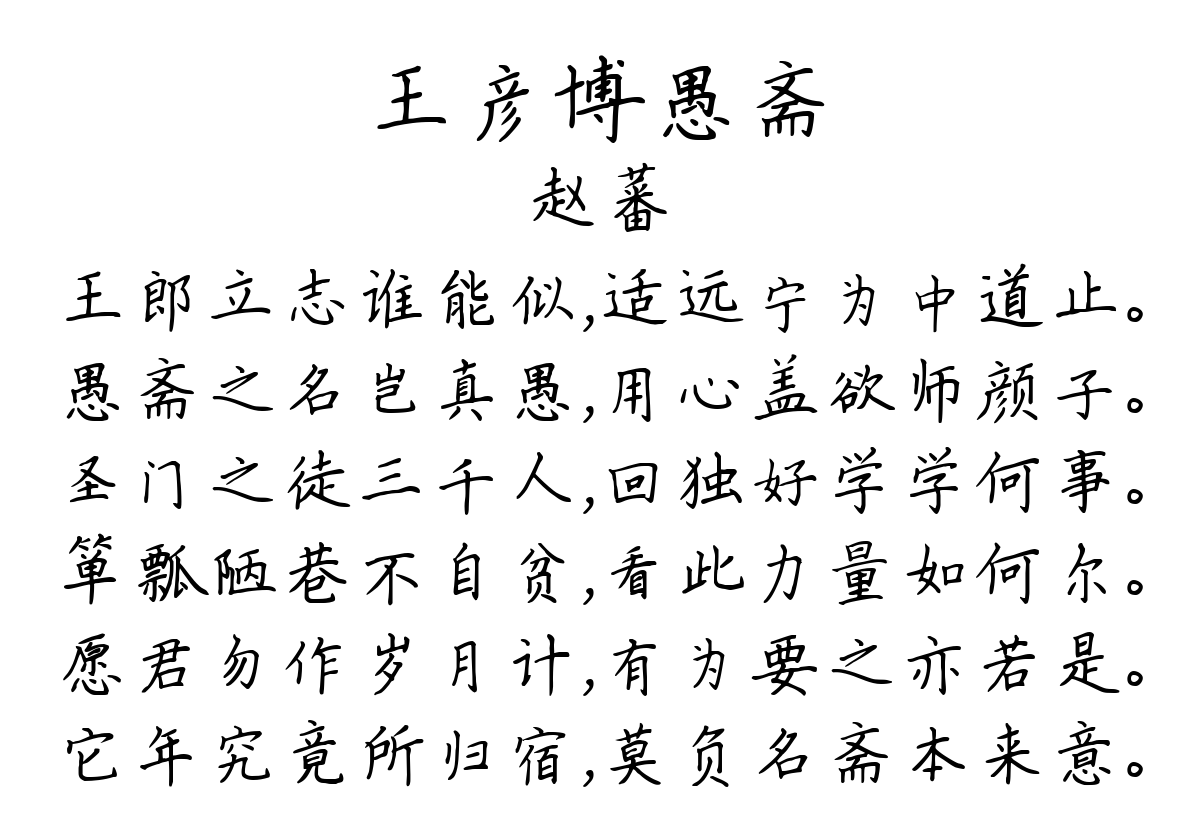 王彦博愚斋
赵蕃
王郎立志谁能似,适远宁为中道止。
愚斋之名岂真愚,用心盖欲师颜子。
圣门之徒三千人,回独好学学何事。
箪瓢陋巷不自贫,看此力量如何尔。
愿君勿作岁月计,有为要之亦若是。
它年究竟所归宿,莫负名斋本来意。